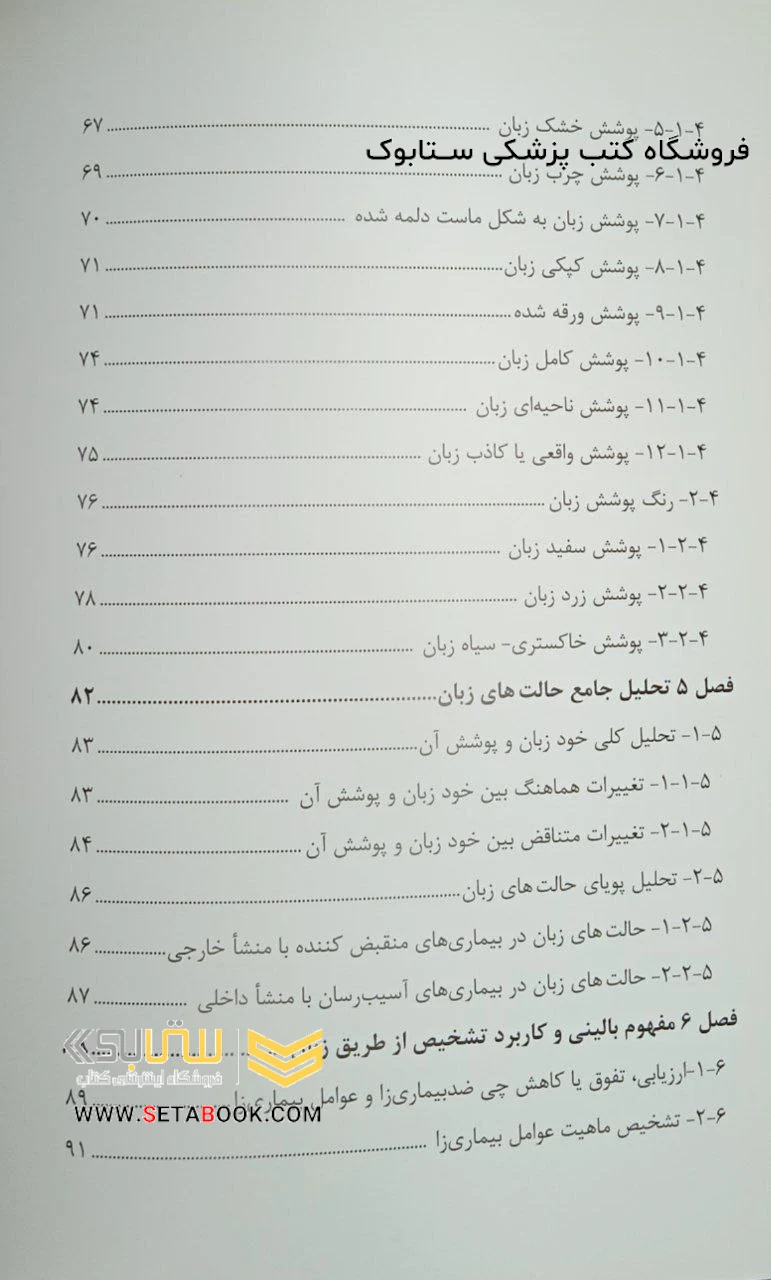 ۴-۱-۵- پوشش خشک زبان ........ ۶۷
فروشگاه کتب پزشکی ستابوک
۴-۱-۶- پوشش چرب زبان ........ ۶۹
۴-۱-۷- پوشش زبان به شکل ماست دلمه شده ........ ۷۰
۴-۱-۸- پوشش کپکی زبان ........ ۷۱
۴-۱-۹- پوشش ورقه شده ........ ۷۱
۴-۱-۱۰- پوشش کامل زبان ........ ۷۴
۴-۱-۱۱- پوشش ناحیه‌ای زبان ........ ۷۴
۴-۱-۱۲- پوشش واقعی یا کاذب زبان ........ ۷۵
۴-۲- رنگ پوشش زبان ........ ۷۶
۴-۲-۱- پوشش سفید زبان ........ ۷۶
۴-۲-۲- پوشش زرد زبان ........ ۷۸
۴-۲-۳- پوشش خاکستری- سیاه زبان ........ ۸۰
فصل ۵ تحلیل جامع حالت های زبان ........ ۸۲
۵-۱- تحلیل کلی خود زبان و پوشش آن ........ ۸۳
۵-۱-۱- تغییرات هماهنگ بین خود زبان و پوشش آن ........ ۸۳
۵-۱-۲- تغییرات متناقض بین خود زبان و پوشش آن ........ ۸۴
۵-۲- تحلیل پویای حالت های زبان ........ ۸۶
۵-۲-۱- حالت های زبان در بیماری‌های منقبض کننده با منشأ خارجی ........ ۸۶
۵-۲-۲- حالت های زبان در بیماری‌های آسیب‌رسان با منشأ داخلی ........ ۸۷
فصل ۶ مفهوم بالینی و کاربرد تشخیص از طریق زبان ........
ستابوک
فروشگاه اینترنتی کتاب
۶-۱-ارزیابی، تفوق یا کاهش چی ضدبیماری‌زا و عوامل بیماری‌زا ........ ۸۹
WWW.SETABOOK.COM
۶-۲- تشخیص ماهیت عوامل بیماری‌زا ........ ۹۱